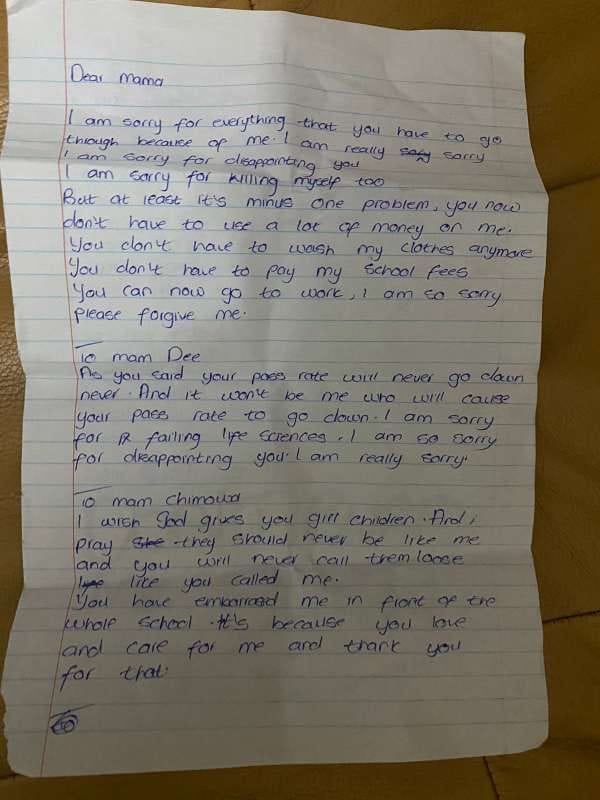 Dear mama
I am sorry for everything that you have to go
through because of me. I am really sorry
I am sorry for disappointing you
I am sorry for killing myself too
But at least it's minus one problem, you now
don't have to use a lot of money on me.
You don't have to wash my clothes anymore
You don't have to pay my school fees
You can now go to work, I am so sorry
please forgive me.
To mam Dee
As you said your pass rate will never go down
never. And it won't be me who will cause
your pass rate to go down. I am sorry
for failing life sciences. I am so sorry
for disappointing you. I am really sorry.
To mam Chimowa
I wish God gives you girl children. And i
pray they should never be like me
and you will never call them loose
like you called me.
You have embarrased me in front of the
whole school. It's because you love
and care for me and thank you
for that.